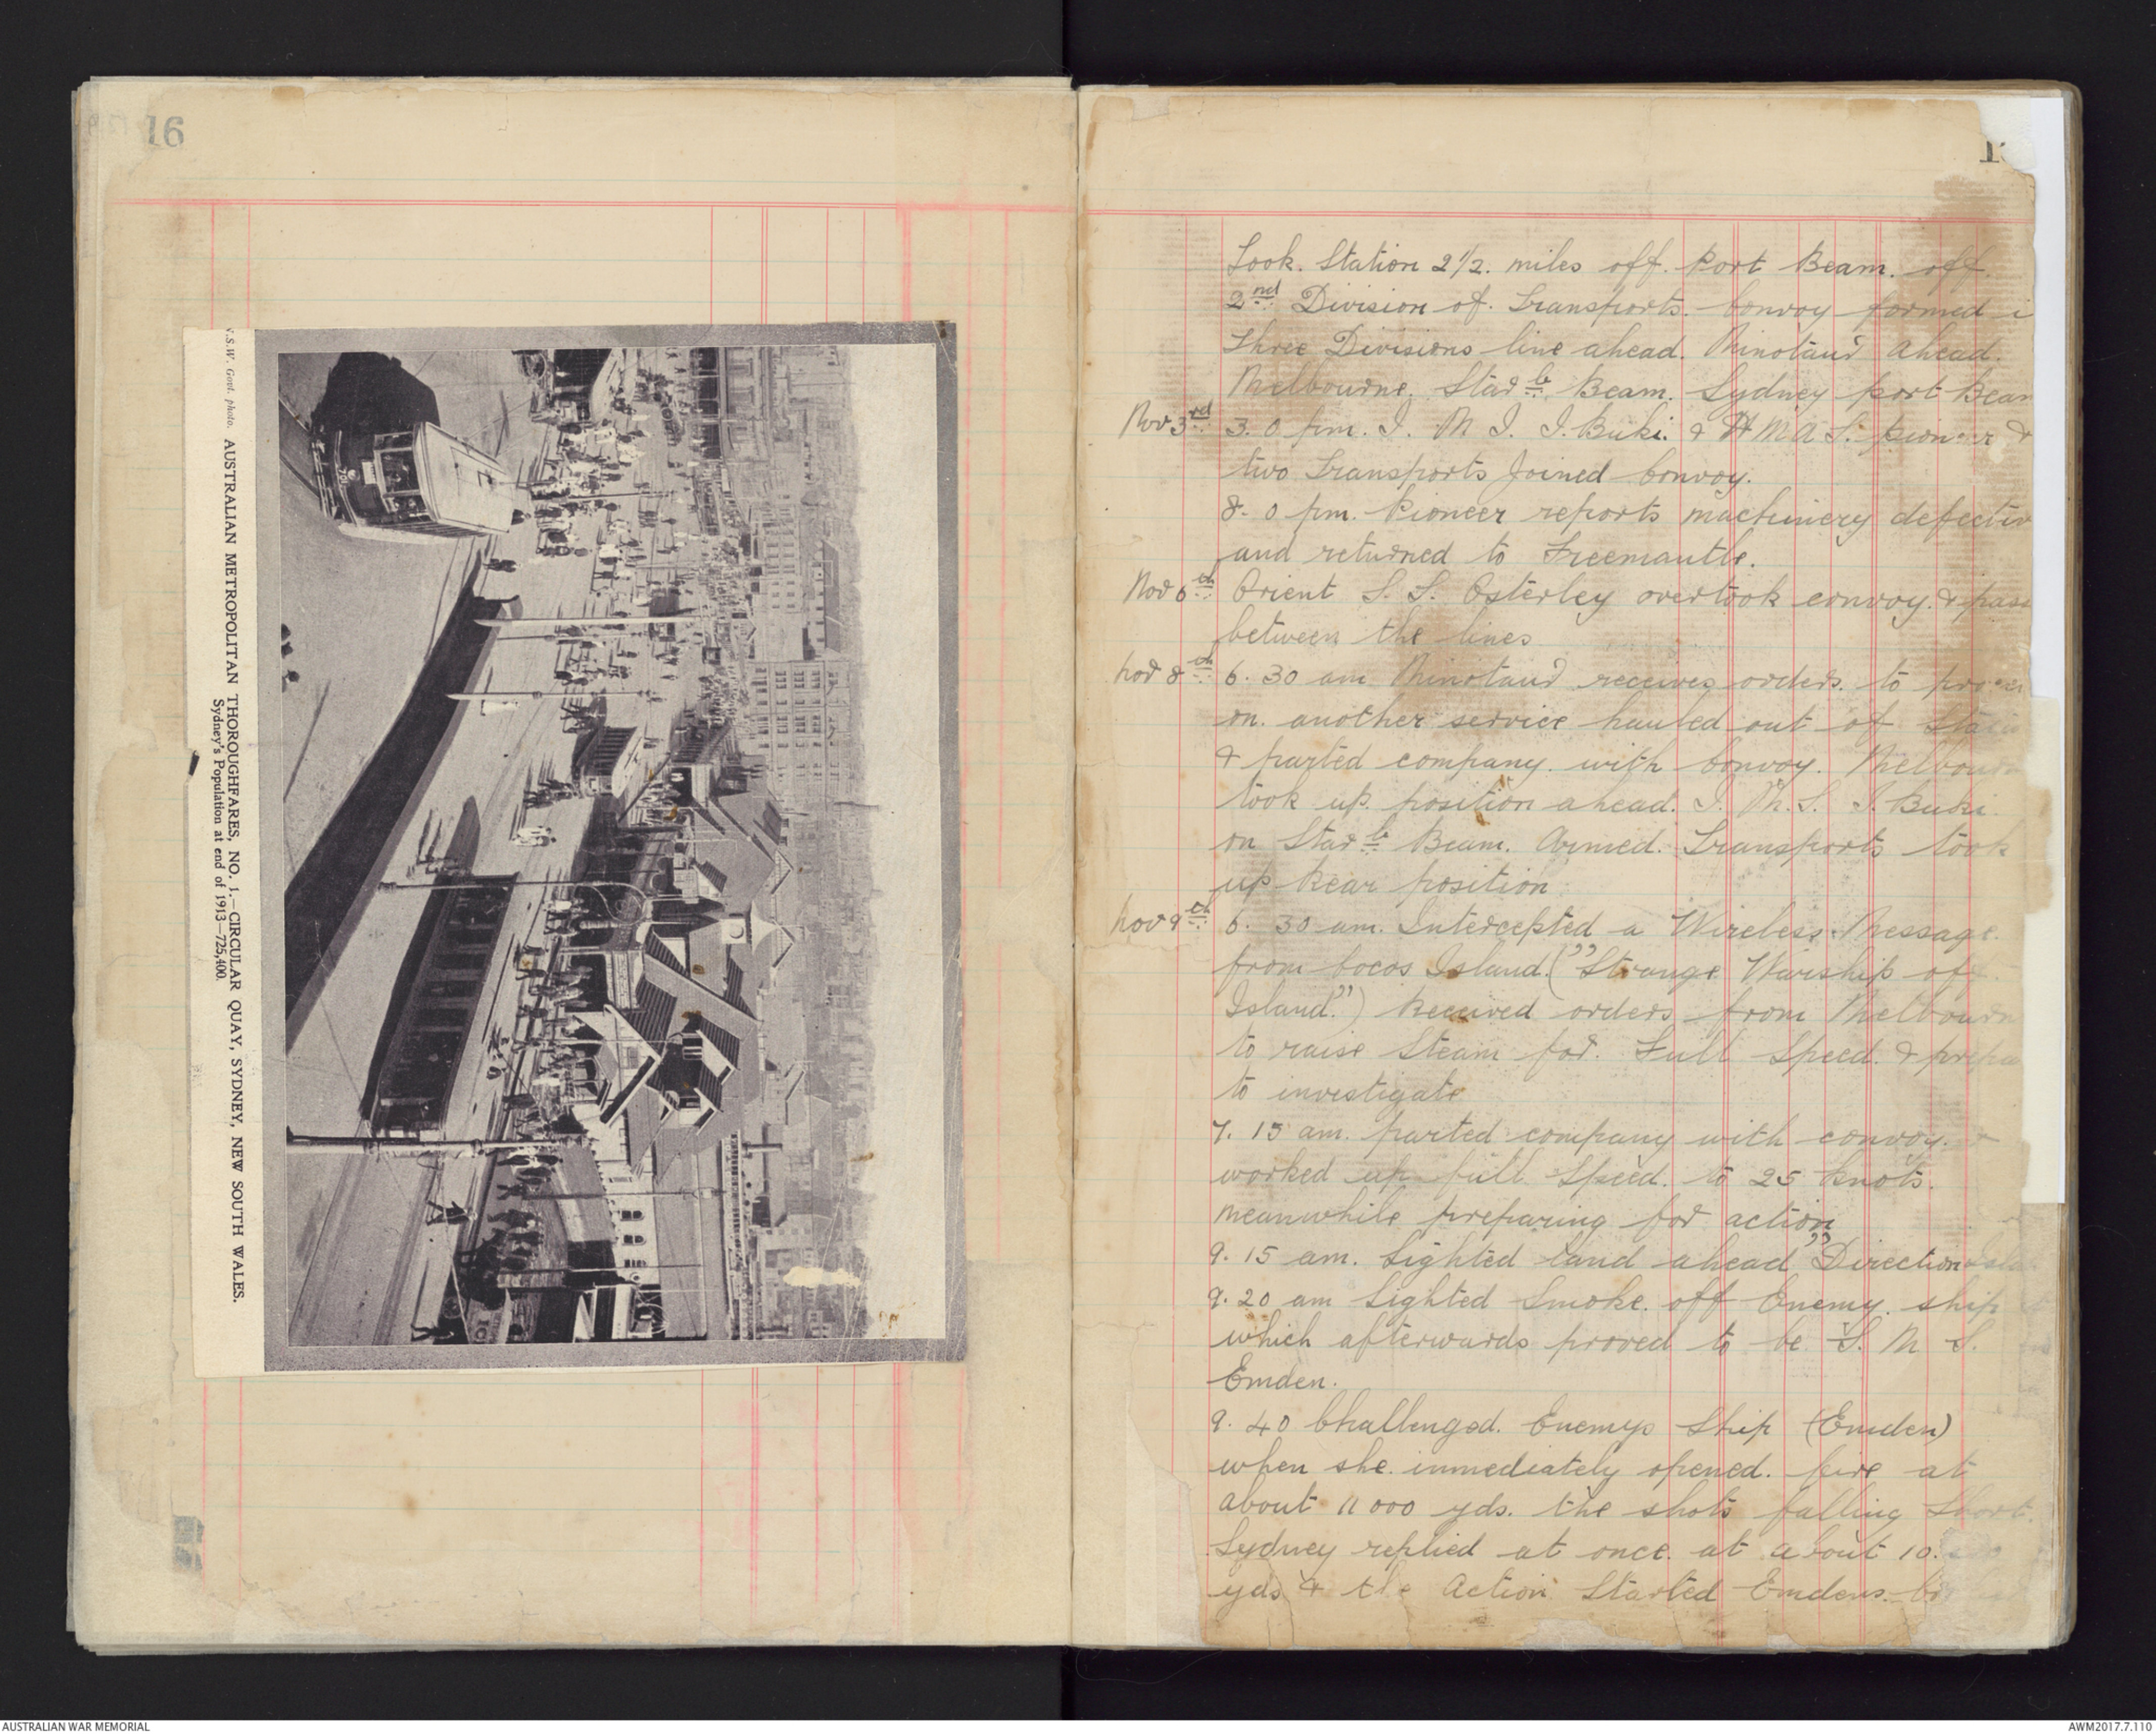 16
N.S.W. Govt. photo.
AUSTRALIAN METROPOLITAN THOROUGHFARES, NO. 1.—CIRCULAR QUAY, SYDNEY, NEW SOUTH WALES.
Sydney's Population at end of 1913—725,400.
Took. Station 2 1/2. miles off. Port Beam. off.
2nd Division of. Transports. Convoy formed i
Three Divisions line ahead. Minotaur Ahead.
Melbourne. Starb. Beam. Sydney port Beam
Nov 3rd 3. 0 pm. I. M I. I. Buki. & H M A S. &
two Transports Joined Convoy.
8. 0 pm. Pioneer reports machinery defectiv
and returned to Freemantle.
Nov 6th Orient S. S. Osterley overtook convoy. & pass
between the lines
Nov 8th 6. 30 am Minotaur receives orders. to
on. another service hauled out of
& parted company. with Convoy. Melbourn
took up. position ahead. I. M. S. I. Buki.
on Starb. Beam. Armed. Transports took
up Rear position
Nov 9th 6. 30 am. Intercepted a Wireless. Message.
from Cocos Island. ("Strange Warship off
Island.") Received orders from Melbourn
to raise Steam for. Full Speed. & prepa
to investigate
7. 15 am. parted company with convoy. &
worked up full Speed. to 25 Knots.
meanwhile preparing for action
9. 15 am. Sighted land ahead "Direction
9. 20 am Sighted Smoke. off Enemy. ship
which afterwards proved to be S. M S.
Emden.
9. 40 Challenged. Enemys Ship (Emden)
when she. immediately opened. fire at
about 11 000 yds. the shots falling Short.
Sydney replied at once. at about 10.
yds & the Action Started Emdens.
AUSTRALIAN WAR MEMORIAL
AWM2017.7.110